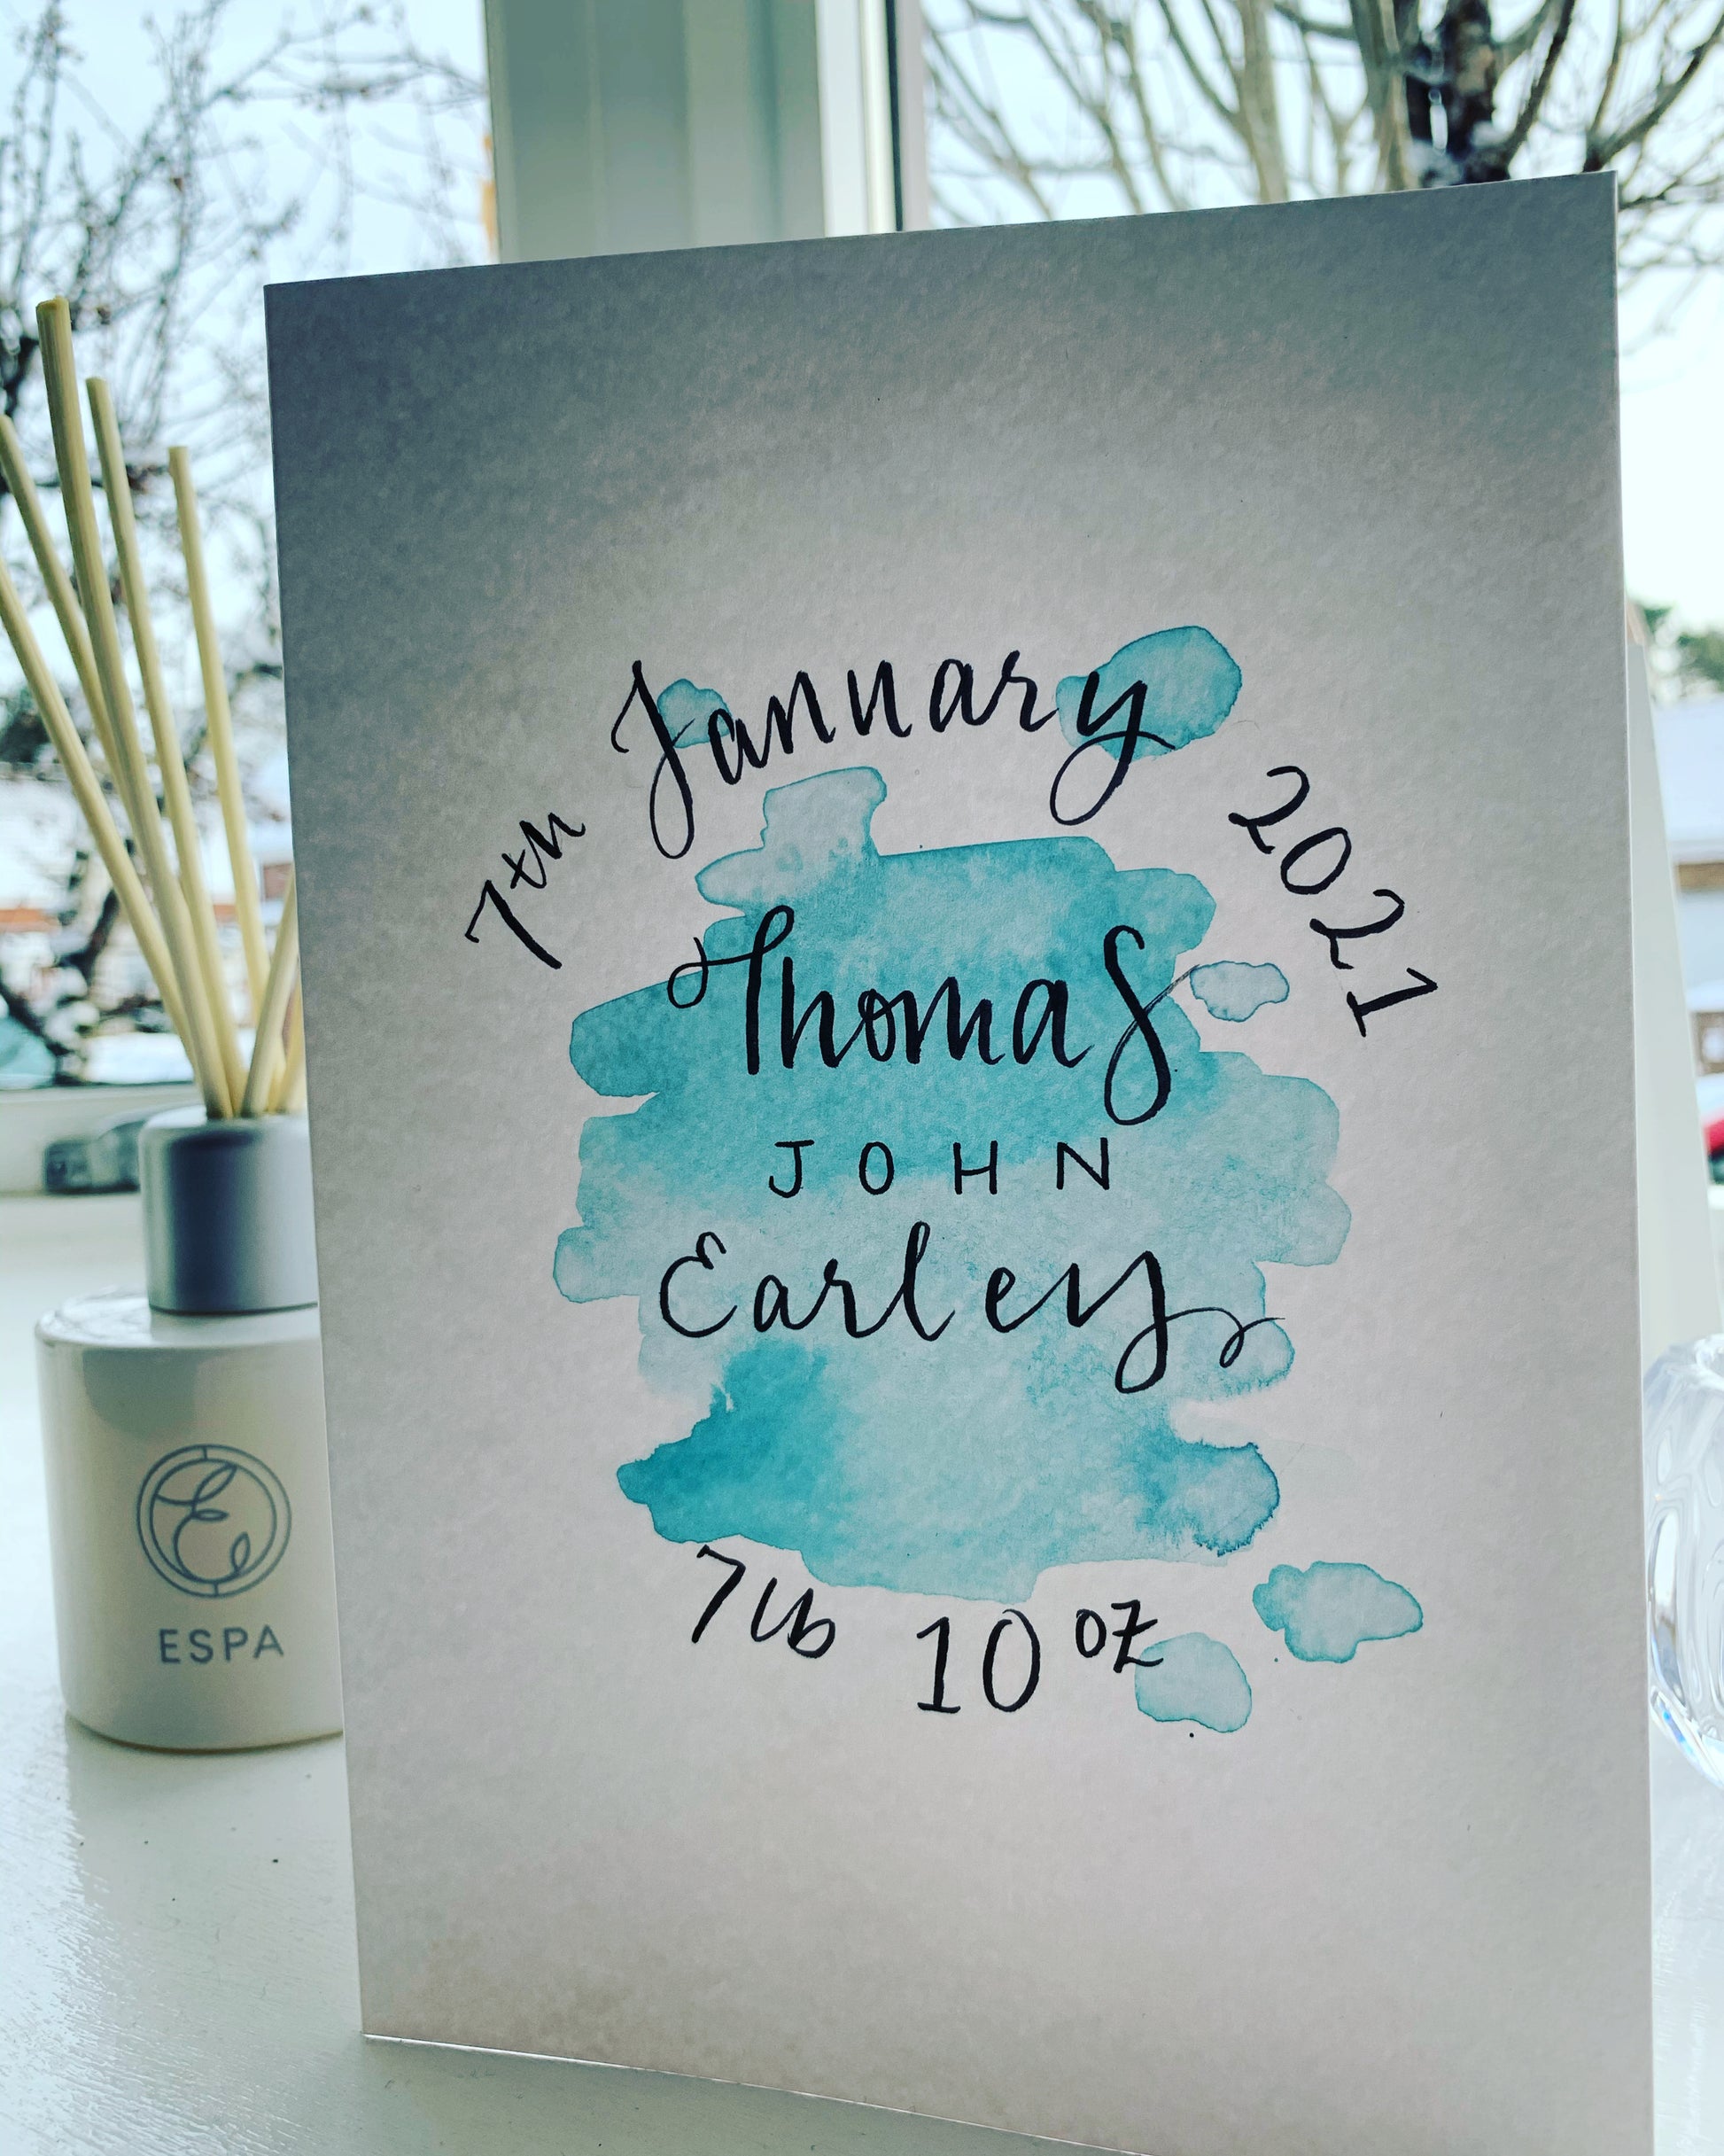 7th January 2021
Thomas
JOHN
Earley
7lb 10 oz
E
ESPA